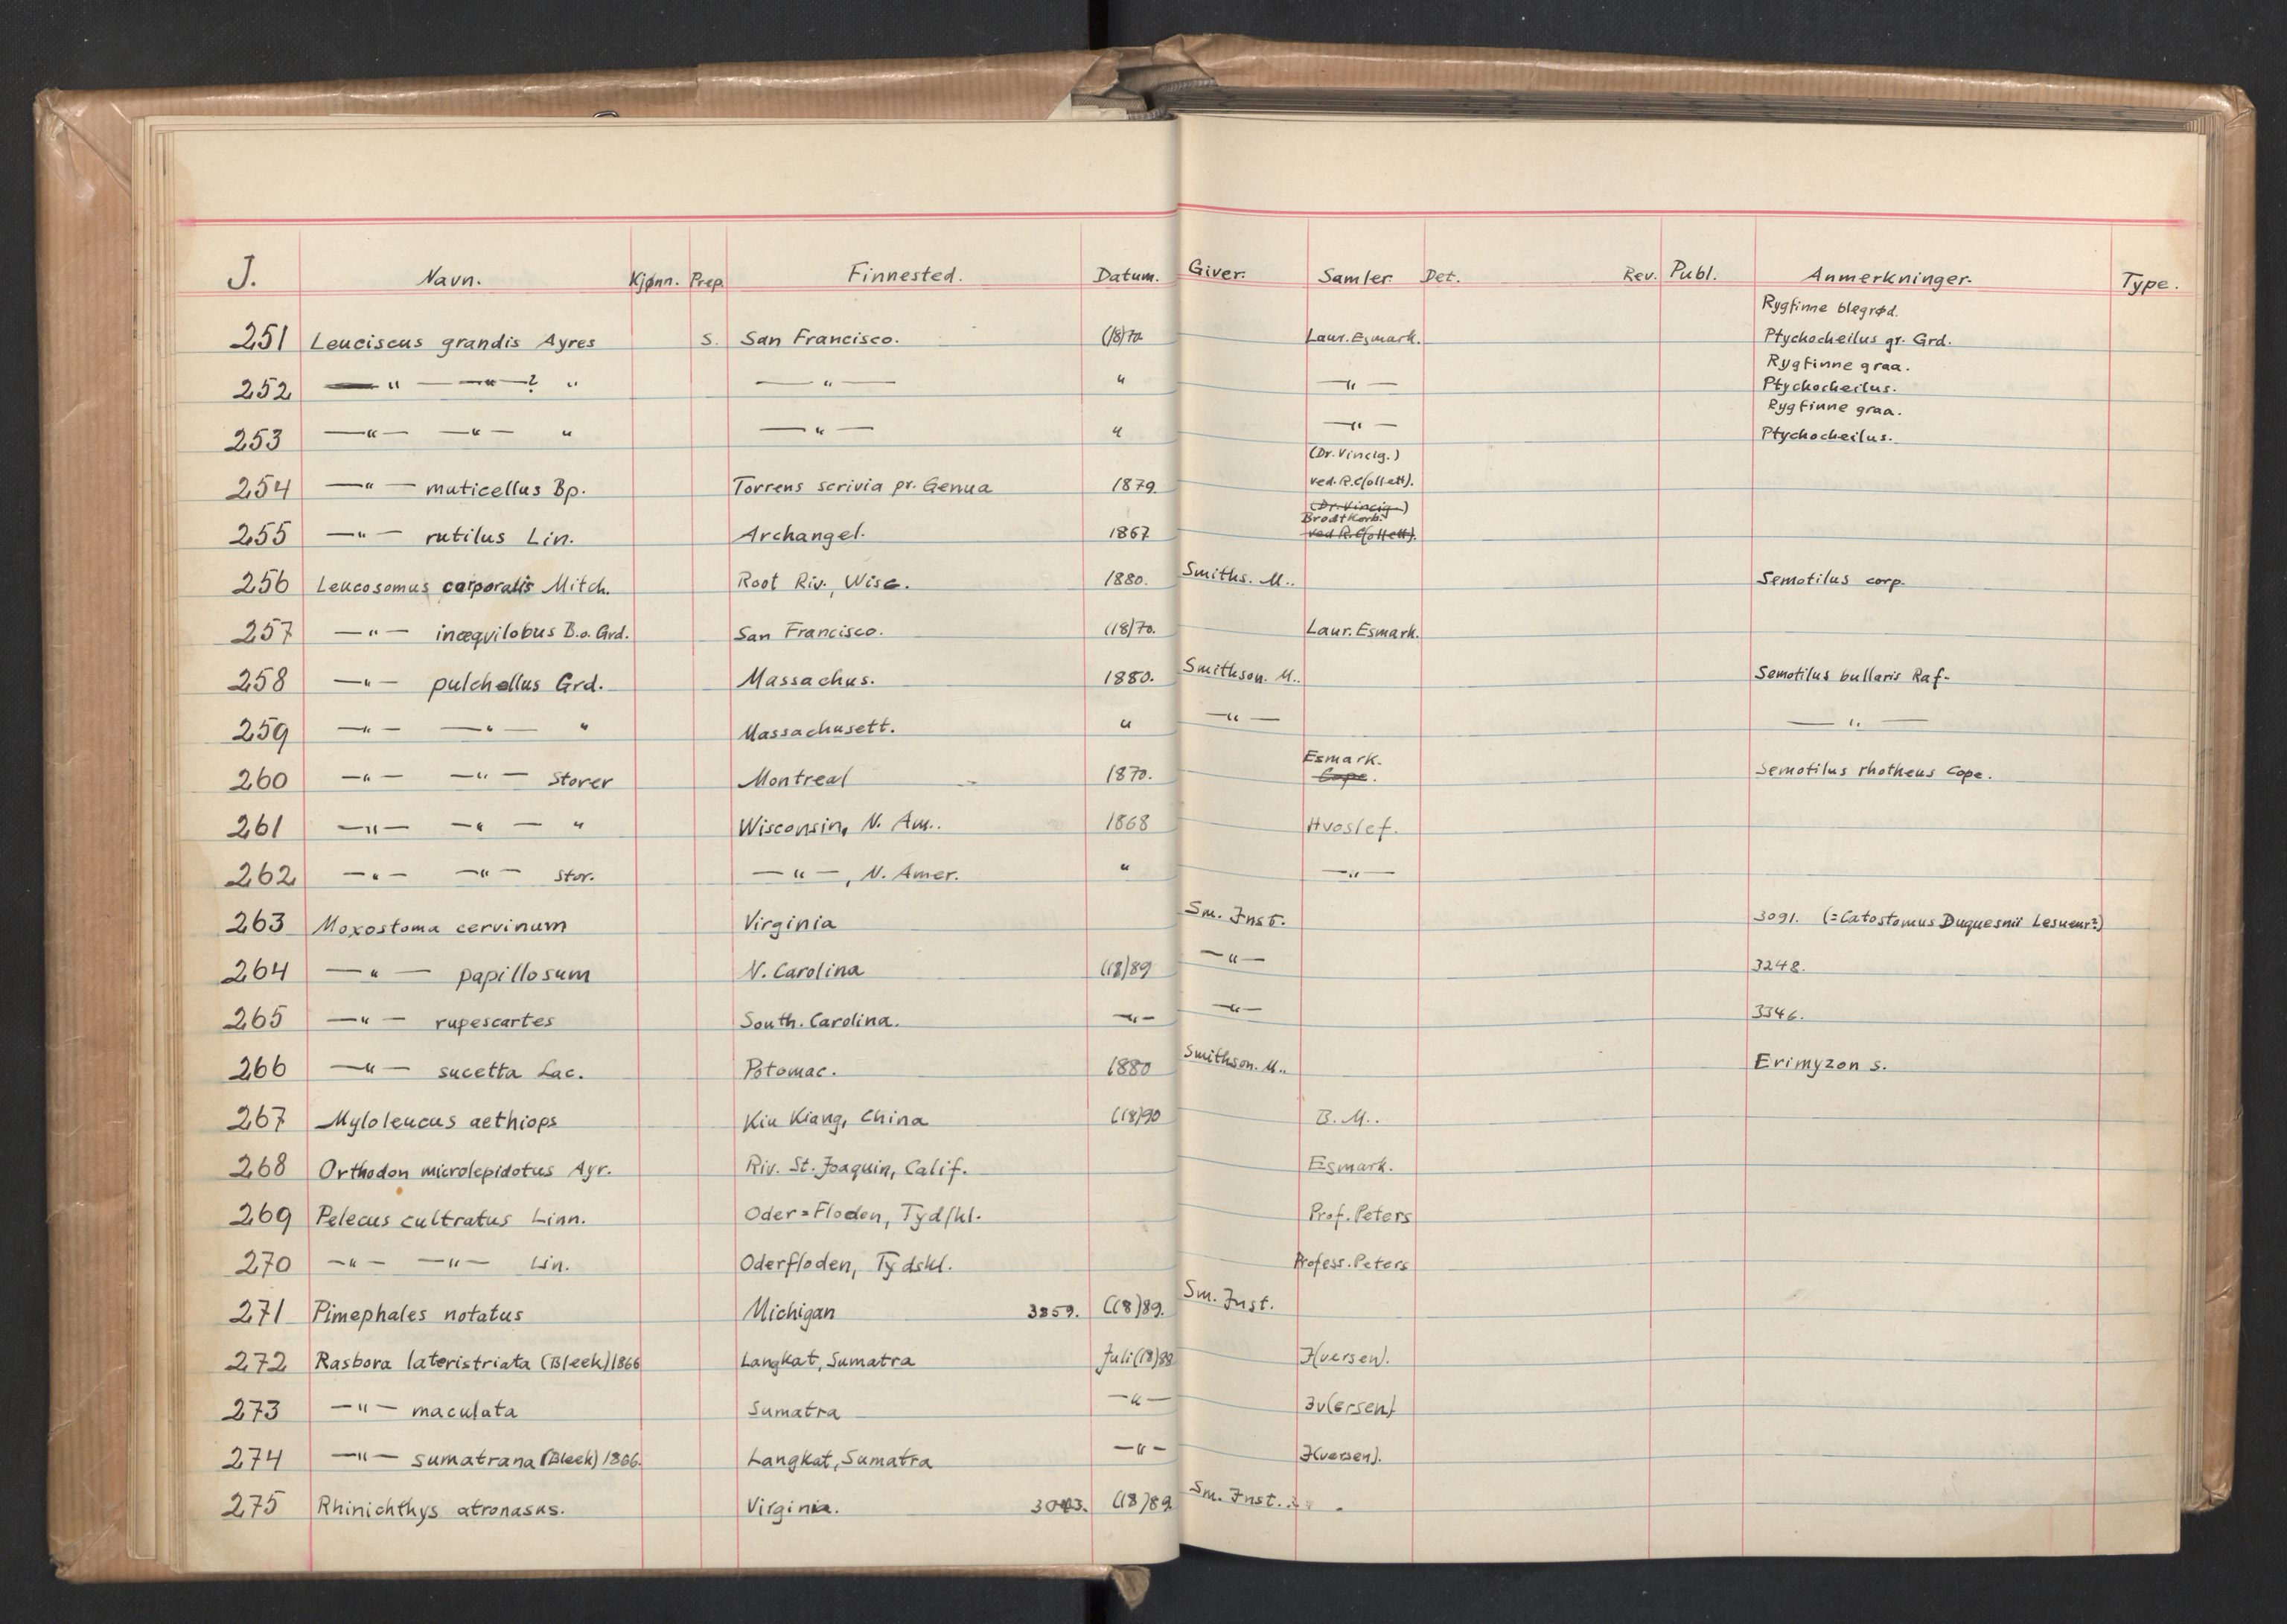 J. Navn. Kjønn. Prep. Finnested. Datum. Giver. Samler. Det. Rev. Publ. Anmerkninger. Type.
Rygfinne blegrød.
251 Leuciscus grandis Ayres S. San Francisco. (18)70 Laur. Esmark. Ptychocheilus gr. Grd.
Rygfinne graa.
252 —"— —"—? " —"— " —"— Ptychocheilus.
Rygfinne graa.
253 —"— —"— " —"— " —"— Ptychocheilus.
(Dr. Vincig.)
254 —"— muticellus Bp. Torrens scrivia pr. Genua 1879. ved. R. C(ollett).
(Dr. Vincig.)
Brodtkorb.
255 —"— rutilus Lin. Archangel. 1867 ved R. C(ollett).
256 Leucosomus corporalis Mitch. Root Riv., Wisc. 1880. Smiths. M.. Semotilus corp.
257 —"— inæqvilobus B.o. Grd. San Francisco. (18)70. Laur. Esmark.
258 —"— pulchellus Grd. Massachus. 1880. Smithson. M.. Semotilus bullaris Raf-
259 —"— —"— " Massachusett. " —"— —"—
Esmark.
260 —"— —"— Storer Montreal 1870. Cope. Semotilus rhotheus Cope.
261 —"— —"— " Wisconsin, N. Am.. 1868 Hvoslef.
262 —"— —"— Stor. —"—, N. Amer. " —"—
263 Moxostoma cervinum Virginia Sm. Inst. 3091. (=Catostomus Duquesnii Lesueur?)
264 —"— papillosum N. Carolina (18)89 —"— 3248.
265 —"— rupescartes South. Carolina. —"— —"— 3346.
266 —"— sucetta Lac. Potomac. 1880 Smithson. M.. Erimyzon s.
267 Myloleucus aethiops Kiu Kiang, China (18)90 B. M..
268 Orthodon microlepidotus Ayr. Riv. St. Joaquin, Calif. Esmark.
269 Pelecus cultratus Linn. Oder=Floden, Tydskl. Prof. Peters
270 —"— —"— Lin. Oderfloden, Tydskl. Profess. Peters
271 Pimephales notatus Michigan 3259. (18)89. Sm. Inst.
272 Rasbora lateristriata (Bleek) 1866 Langkat, Sumatra Juli (18)88 I(versen).
273 —"— maculata Sumatra —"— Iv(ersen)
274 —"— sumatrana (Bleek) 1866. Langkat, Sumatra —"— I(versen).
275 Rhinichthys atronasus. Virginia. 3043. (18)89 Sm. Inst.